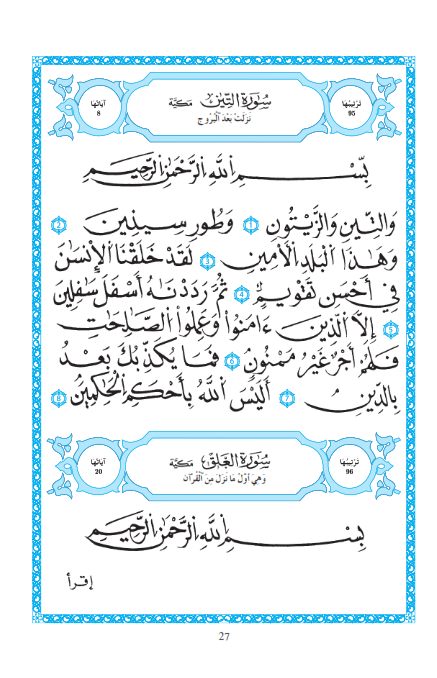 تَرْتِيبُهَا
95
سُورَةُ التِّينِ مَكِيَّة
نَزَلَتْ بَعْدَ الْبُرُوجِ
آيَاتُهَا
8
بِسْمِ اللَّهِ الرَّحْمَٰنِ الرَّحِيمِ
وَالتِّينِ وَالزَّيْتُونِ 1 وَطُورِ سِينِينَ 2
وَهَٰذَا الْبَلَدِ الْأَمِينِ 3 لَقَدْ خَلَقْنَا الْإِنسَٰنَ
فِي أَحْسَنِ تَقْوِيمٍ 4 ثُمَّ رَدَدْنَٰهُ أَسْفَلَ سَٰفِلِينَ
5 إِلَّا الَّذِينَ ءَامَنُوا وَعَمِلُوا الصَّٰلِحَٰتِ
فَلَهُمْ أَجْرٌ غَيْرُ مَمْنُونٍ 6 فَمَا يُكَذِّبُكَ بَعْدُ
بِالدِّينِ 7 أَلَيْسَ اللَّهُ بِأَحْكَمِ الْحَٰكِمِينَ 8
تَرْتِيبُهَا
96
سُورَةُ الْعَلَقِ مَكِيَّة
وَهِيَ أَوَّلُ مَا نَزَلَ مِنَ الْقُرْآنِ
آيَاتُهَا
20
بِسْمِ اللَّهِ الرَّحْمَٰنِ الرَّحِيمِ
إقرأ
27